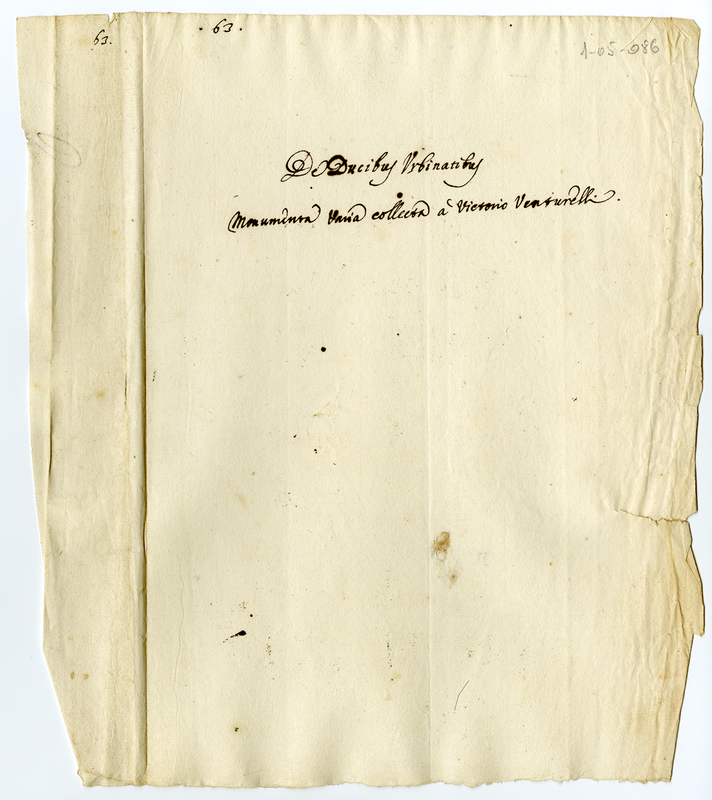 63.
. 63 .
1-05-086
De Ducibus Vrbinatibus
Monumenta Varia collecta à Victorio Venturelli .